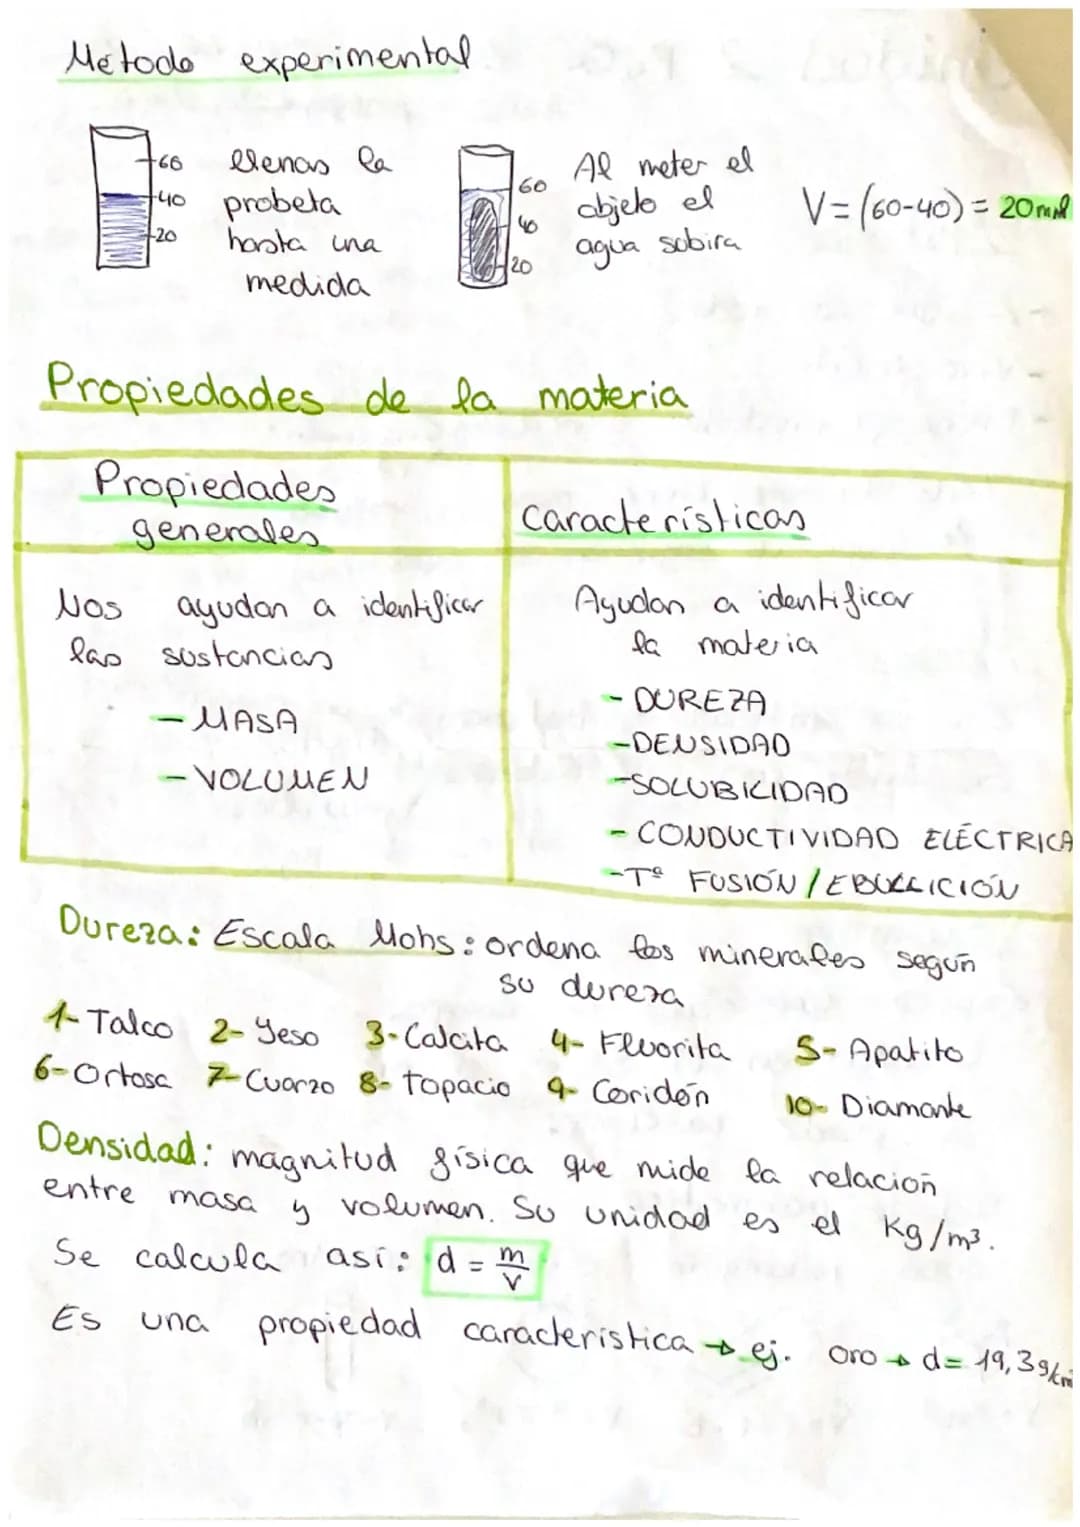 Método experimental
60
40
20
llenas la
probeta
hasta una
medida
60
40
20
Al meter el
objeto el
agua subira
V=(60-40)= 20ml
Propiedades de la materia
Propiedades
generales
Características
Nos ayudan a identificar
las sustancias
- MASA
- VOLUMEN
Ayudan a identificar
la materia
- DUREZA
-DENSIDAD
-SOLUBILIDAD
- CONDUCTIVIDAD ELÉCTRICA
-Tª FUSIÓN / EBULLICIÓN
Dureza: Escala Mohs: ordena los minerales según
su dureza
1- Talco 2- Yeso 3- Calcita 4- Fluorita 5- Apatito
6- Ortosa 7- Cuarzo 8- topacio 9- Coridón 10- Diamante
Densidad: magnitud física que mide la relación
entre masa y volumen. Su unidad es el Kg/m³.
Se calcula así: d = m/v
Es una propiedad característica → ej. oro → d= 19,3 g/cm